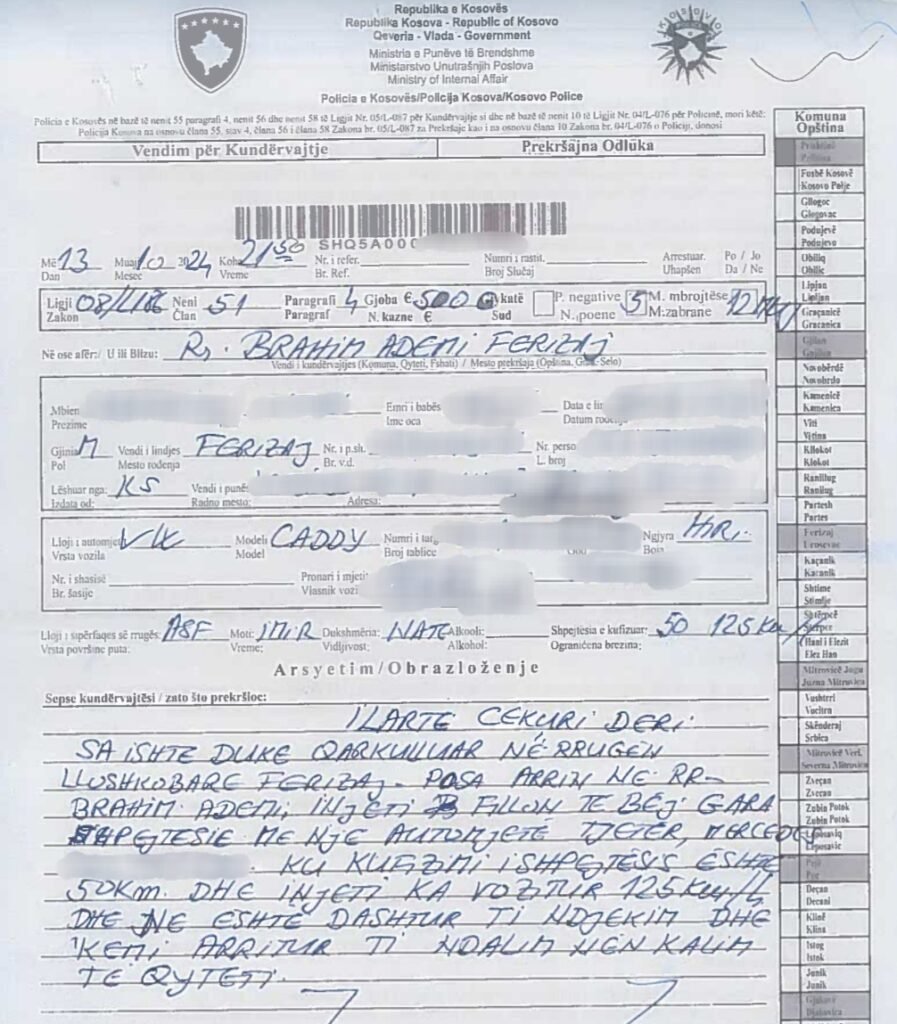 Republika e Kosovës
Republika Kosova - Republic of Kosovo
Qeveria - Vlada - Government
Ministria e Punëve të Brendshme
Ministarstvo Unutrašnjih Poslova
Ministry of Internal Affair
Policia e Kosovës/Policija Kosova/Kosovo Police
Policia e Kosovës në bazë të nenit 55 paragrafi 4, nenit 56 dhe nenit 58 të Ligjit Nr. 05/L-087 për Kundërvajtje si dhe në bazë të nenit 10 të Ligjit Nr. 04/L-076 për Policinë, mori këtë:
Policija Kosova na osnovu člana 55, stav 4, člana 56 i člana 58 Zakona br. 05/L-087 za Prekršaje kao i na osnovu člana 10 Zakona br. 04/L-076 o Policiji, donosi
Vendim për Kundërvajtje Prekršajna Odluka
SHQ5A000
Më 13 Muaj 10 2024 Koha 21 50 Nr. i refer. Numri i rastit. Arrestuar. Po / Jo
Dan Mesec Vreme Br. Ref. Broj Slučaj Uhapšen Da / Ne
Ligji 08/L186 Neni 51 Paragrafi 4 Gjoba € 500 Gjykatë P. negative 5 M. mbrojtëse 12
Zakon Član Paragraf N. kazne € Sud N. poene M:zabrane
Në ose afër:/ U ili Blizu: Rr. BRAHIM ADEMI FERIZAJ
Vendi i kundërvajtjes (Komuna, Qyteti, Fshati) / Mesto prekršaja (Opština, Grad, Selo)
Mbien Emri i babës Data e
Prezime Ime oca Datum
Gjinia M Vendi i lindjes FERIZAJ Nr. i p.sh. Nr. perso
Pol Mesto rođenja Br. v.d. L. broj
Lëshuar nga: KS Vendi i punës
Izdata od: Radno mesto: Adresa:
Lloji i automjeti VW Modeli CADDY Numri i targ Ngjyra HIRI.
Vrsta vozila Model Broj tablice Boja
Nr. i shasisë Pronari i mjeti
Br. šasije Vlasnik vozi
Lloji i sipërfaqes së rrugës: ASF Moti: IMIR Dukshmëria: NATE Alkooli: Shpejtësia e kufizuar: 50 125 Km/h
Vrsta površine puta: Vreme: Vidljivost: Alkohol: Ograničena brezina:
Arsyetim/Obrazloženje
Sepse kundërvajtësi / zato što prekršioc:
ILARTE CEKURI DERI
SA ISHTE DUKE QARKULLUAR NË RRUGEN
LLOSHKOBARE FERIZAJ POSA ARRIN NE RR-
BRAHIM ADEMI, INJETI FILLON TE BËJ GARA
SHPEJTESIE ME NJE AUTOMJETË TJETËR, MERCEDES
KU KUFIZIMI ISHPEJTËSIS ËSHTE
50KM. DHE INJETI KA VOZITUR 125 KM/h
DHE NE ËSHTË DASHTUR TI NDJEKIM DHE
KEMI ARRITUR TI NDALIM NËN KALIM
TË QYTETI.
Komuna
Opština
Fushë Kosovë
Kosovo Polje
Gllogoc
Glogovac
Podujevë
Podujevo
Obiliq
Obilic
Lipjan
Lipljan
Graçanicë
Gracanica
Gjilan
Novobërdë
Novobrdo
Kamenicë
Kamenica
Viti
Vitina
Kllokot
Klokot
Ranillug
Ranilug
Partesh
Partes
Ferizaj
Urosevac
Kaçanik
Kacanik
Shtime
Stimlje
Shtërpcë
Hani i Elezit
Elez Han
Mitrovicë Jugu
Juzna Mitrovica
Vushtrri
Vucitrn
Skënderaj
Srbica
Mitrovicë Veri.
Severna Mitrovica
Zveçan
Zvecan
Zubin Potok
Zubin Potok
Leposaviq
Leposavic
Deçan
Decani
Klinë
Klina
Istog
Istok
Junik
Junik
Gjakovë
Djakovica